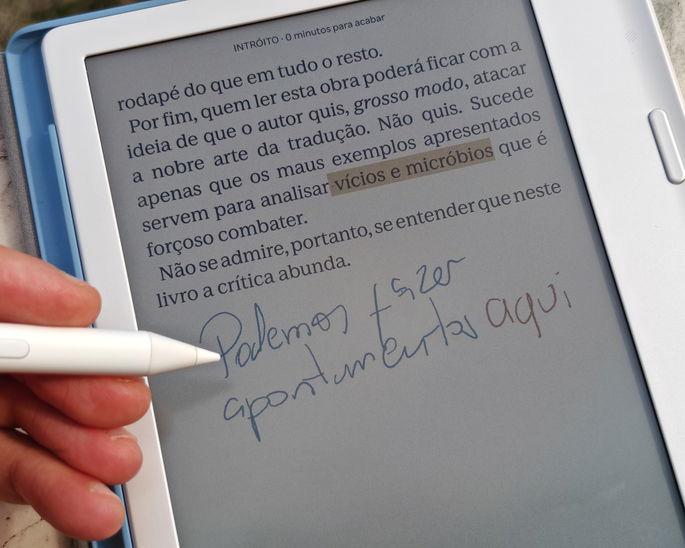 INTRÓITO · 0 minutos para acabar
rodapé do que em tudo o resto.
Por fim, quem ler esta obra poderá ficar com a
ideia de que o autor quis, grosso modo, atacar
a nobre arte da tradução. Não quis. Sucede
apenas que os maus exemplos apresentados
servem para analisar vícios e micróbios que é
forçoso combater.
Não se admire, portanto, se entender que neste
livro a crítica abunda.
Podemos fazer
apontamentos aqui